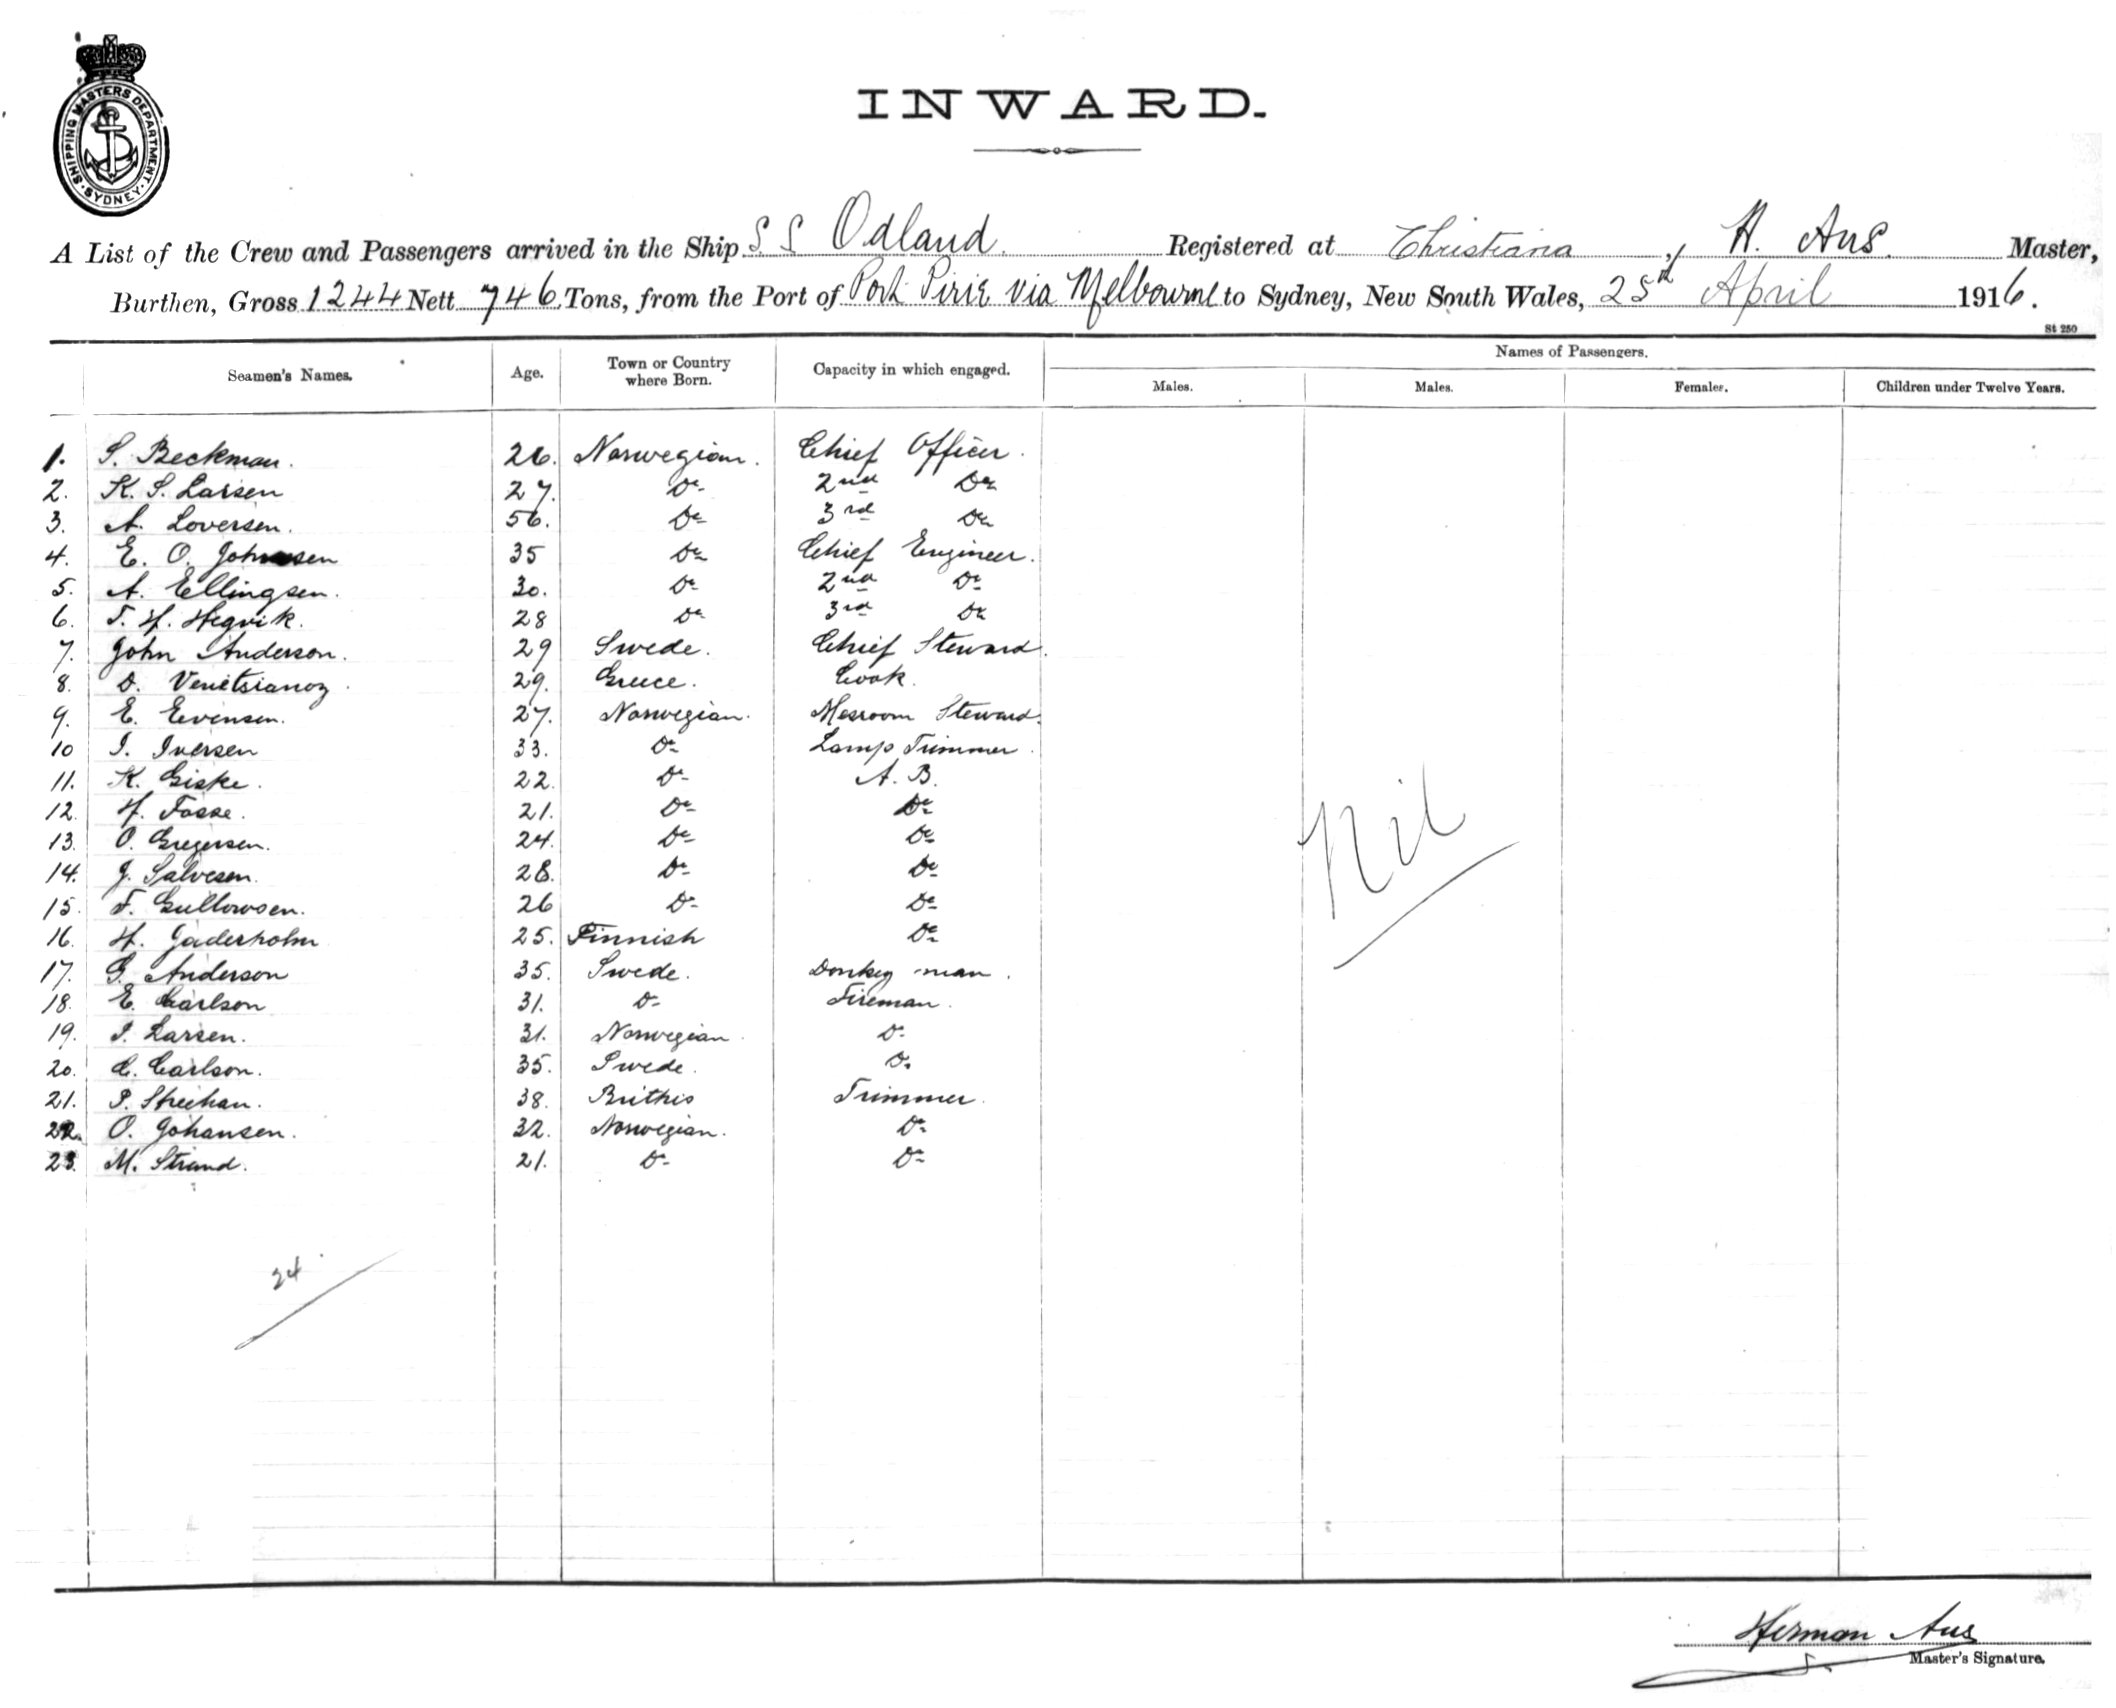 SHIPPING MASTERS DEPARTMENT. SYDNEY.
INWARD.
A List of the Crew and Passengers arrived in the Ship S S Odland. Registered at Christiana, H. Aus. Master,
Burthen, Gross 1244 Nett 746 Tons, from the Port of Port Pirie via Melbourne to Sydney, New South Wales, 25th April 1916.
St 250
Names of Passengers.
Seamen's Names. Age. Town or Country where Born. Capacity in which engaged. Males. Males. Females. Children under Twelve Years.
1. S. Beckman. 26. Norwegian. Chief Officer.
2. K. S. Larsen 27. Do 2nd Do
3. A. Loversen. 56. Do 3rd Do
4. E. O. Johnsen 35 Do Chief Engineer.
5. A. Ellingsen. 30. Do 2nd Do
6. T. H. Hegvik. 28 Do 3rd Do
7. John Anderson. 29 Swede. Chief Steward.
8. D. Venetsianoz. 29. Greece. Cook.
9. E. Evensen. 27. Norwegian. Mesroom Steward.
10 I. Iversen 33. Do Lamp Trimmer.
11. K. Giske. 22. Do A. B.
12. H. Fosse. 21. Do Do
13. O. Gregersen. 24. Do Do
14. J. Salvesen. 28. Do Do
15. F. Gullowsen. 26 Do Do
16. H. Jaderholm 25. Finnish Do
17. G. Anderson 35. Swede. Donkey man.
18. E. Carlson 31. Do Fireman.
19. I. Larsen. 31. Norwegian. Do
20. C. Carlson. 35. Swede. Do
21. P. Sheehan. 38. Brithis Trimmer.
22. O. Johansen. 32. Norwegian. Do
23. M. Strand. 21. Do Do
Nil
24
Herman Aus
Master's Signature.